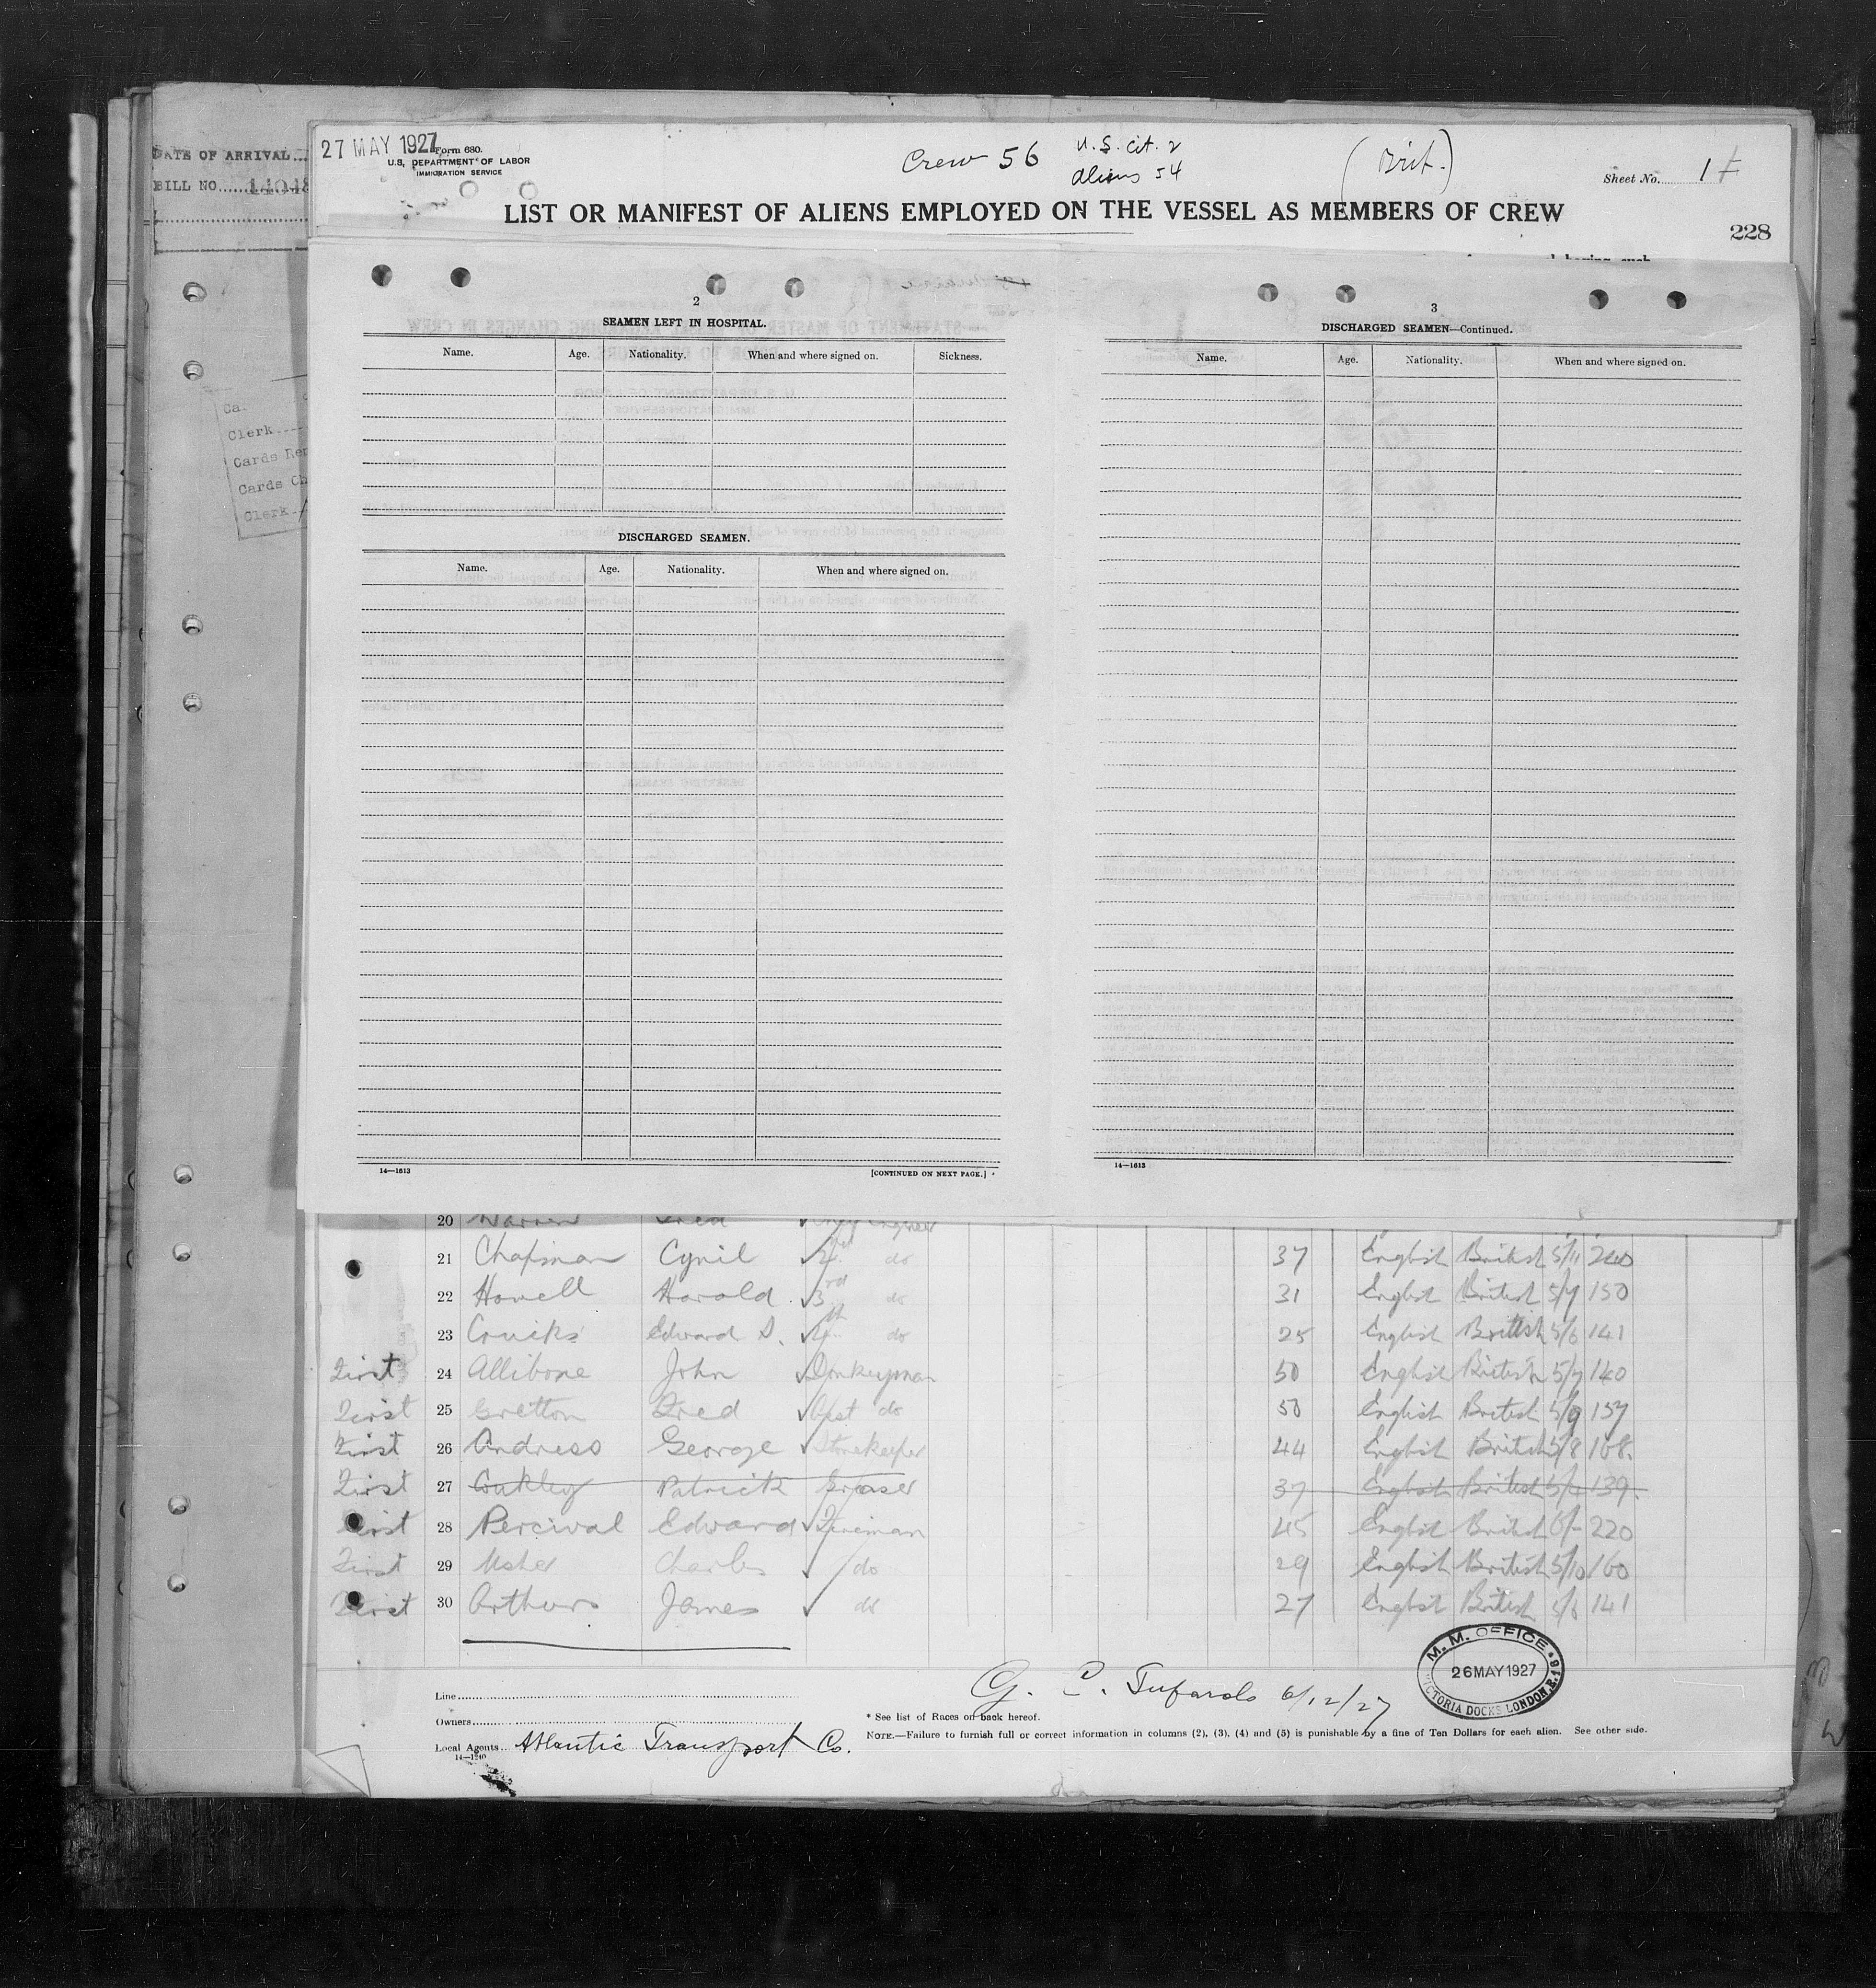 27 MAY 1927
Form 680.
U.S. DEPARTMENT OF LABOR
IMMIGRATION SERVICE
DATE OF ARRIVAL
BILL NO.
Crew 56
U.S. Cit. 2
Aliens 54
(Brit.)
Sheet No. 1
LIST OR MANIFEST OF ALIENS EMPLOYED ON THE VESSEL AS MEMBERS OF CREW
228
Ca.
Clerk
Cards
Cards
Clerk
2
SEAMEN LEFT IN HOSPITAL.
Name. Age. Nationality. When and where signed on. Sickness.
DISCHARGED SEAMEN.
Name. Age. Nationality. When and where signed on.
14—1613
[CONTINUED ON NEXT PAGE.]
3
DISCHARGED SEAMEN—Continued.
Name. Age. Nationality. When and where signed on.
14—1613
20 Warren Fred
21 Chapman Cyril 2nd do 37 English British 5/11 240
22 Howell Harold 3rd do 31 English British 5/7 150
23 Edward 4th do 25 English British 5/6 141
First 24 Allibone John Donkeyman 50 English British 5/7 140
First 25 Gretton Fred Asst do 50 English British 5/9 157
First 26 Andress George Storekeeper 44 English British 5/8 168.
First 27 Patrick Greaser 37 English British 5/4 139.
First 28 Percival Edward Fireman 45 English British 6/- 220
First 29 Usher Charles do 29 English British 5/10 160
First 30 Arthurs James do 27 English British 5/6 141
Line
Owners
Local Agents Atlantic Transport Co.
14—1240
G. 6/12/27
* See list of Races on back hereof.
NOTE.—Failure to furnish full or correct information in columns (2), (3), (4) and (5) is punishable by a fine of Ten Dollars for each alien. See other side.
M. M. OFFICE
26 MAY 1927
VICTORIA DOCKS LONDON, E.16